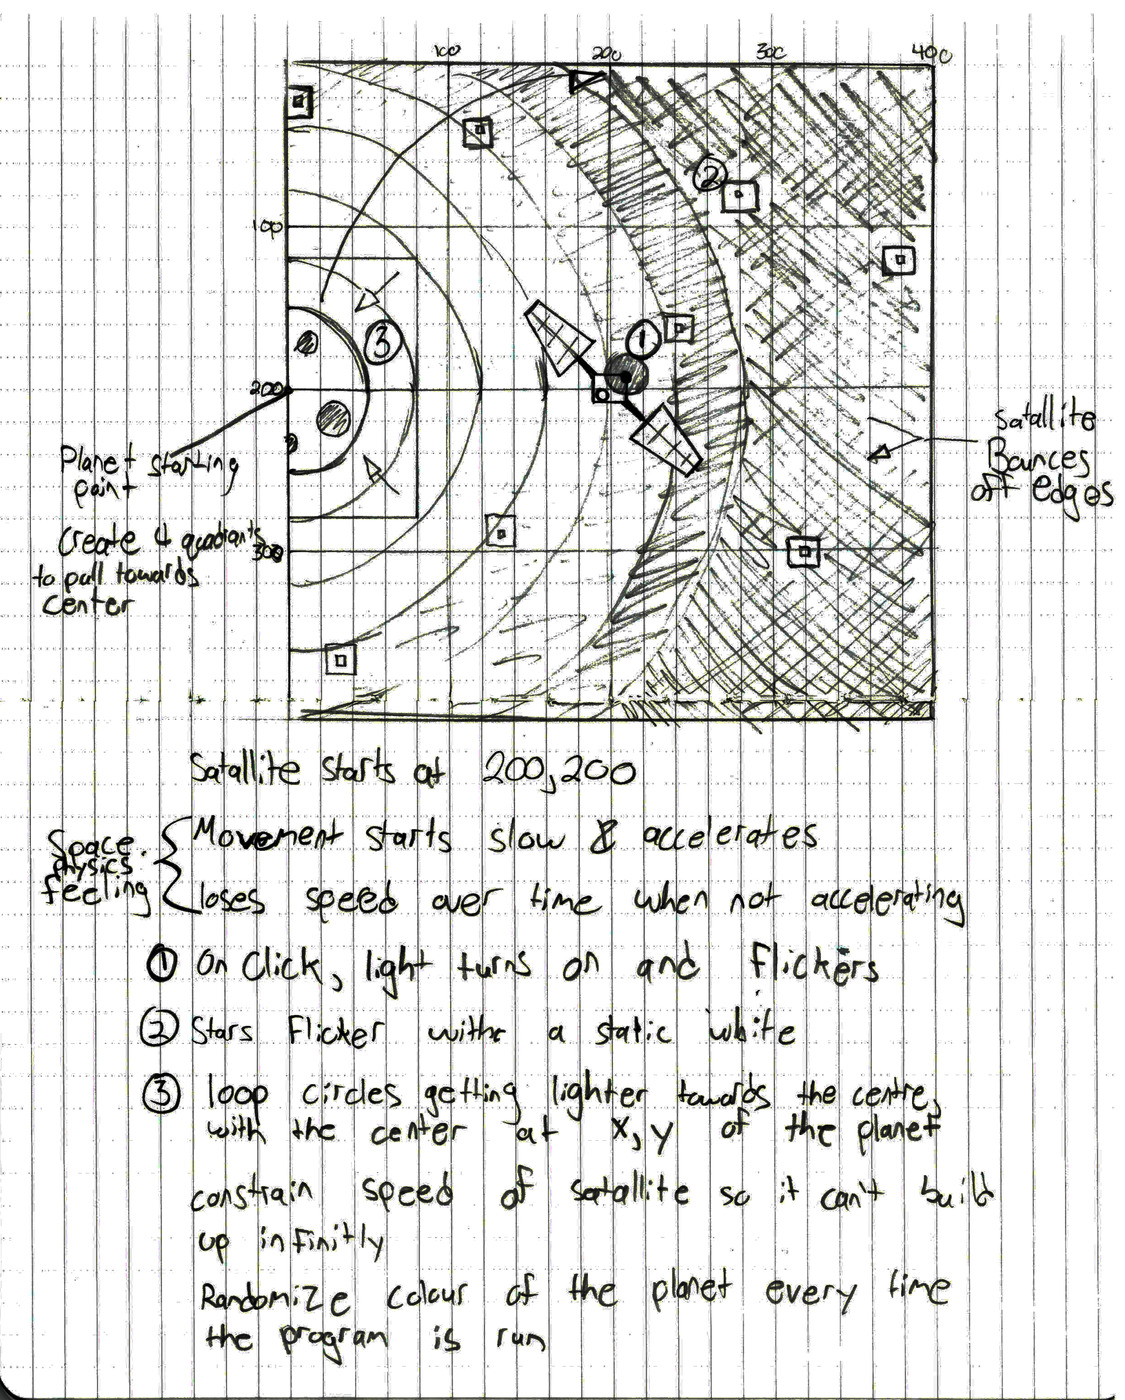 100 200 300 400
2
100
1
3
200
Planet starting
point
Satallite
Bounces
off edges
Create 4 quadrants
to pull towards
center
300
Satallite starts at 200,200
Space
physics
feeling
Movement starts slow & accelerates
loses speed over time when not accelerating
1 On Click, light turns on and flickers
2 Stars Flicker with a static white
3 loop circles getting lighter towards the centre,
with the center at x,y of the planet
constrain speed of satallite so it can't build
up infinitly
Randomize colour of the planet every time
the program is run